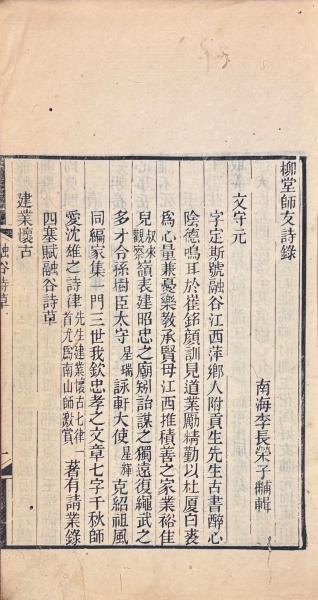 柳堂師友詩錄
南海李長榮子黼輯
文守元
字定斯號融谷江西萍鄉人附貢生先生古書醉心
陰德鳴耳於崔銘顏訓見道業勵精勤以杜厦白裘
為心量兼憂樂教承賢母江西推積善之家業裕佳
兒叔來觀察嶺表建昭忠之廟矧詒謀之獨遠復繩武之
多才令孫樹臣太守星瑞詠軒大使星輝克紹祖風
同編家集一門三世我欽忠孝之文章七字千秋師
愛沈雄之詩律先生建業懷古七律一首尤為南山師激賞著有請業錄
四塞賦融谷詩草
建業懷古
融谷詩草